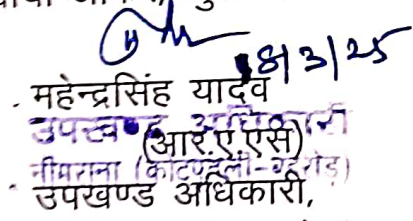 18/3/25
महेन्द्रसिंह यादव
उपखण्ड अधिकारी
(आर.ए.एस)
नीमराना (कोटपूतली-बहरोड़)
उपखण्ड अधिकारी,